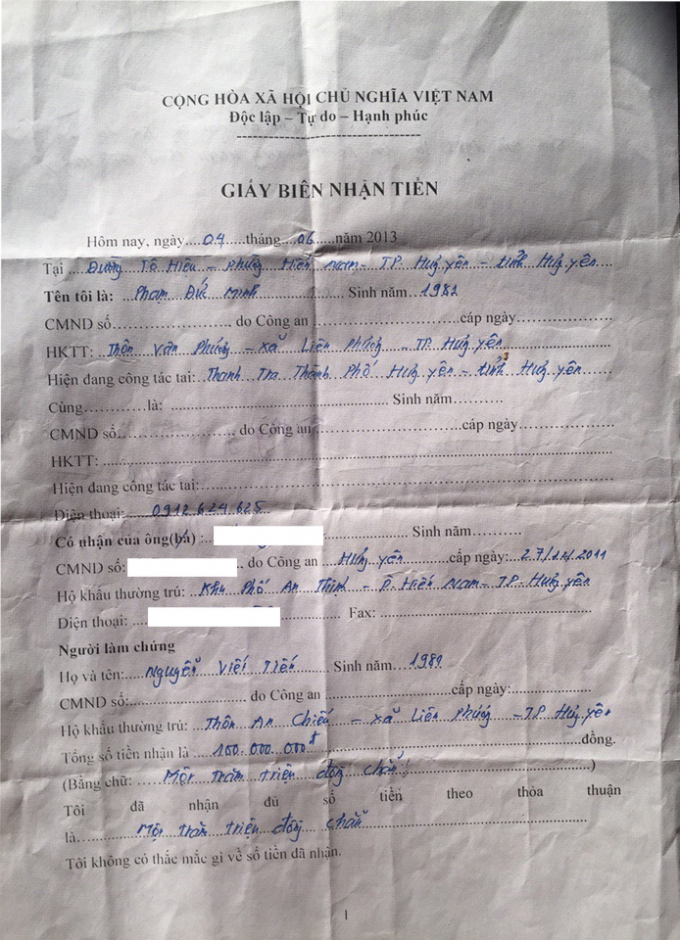 CỘNG HÒA XÃ HỘI CHỦ NGHĨA VIỆT NAM
Độc lập – Tự do – Hạnh phúc
GIẤY BIÊN NHẬN TIỀN
Hôm nay, ngày....04.....tháng...06....năm 2013
Tại ...Đường Tô Hiệu – Phường Hiến Nam – TP. Hưng Yên – tỉnh Hưng Yên....
Tên tôi là: ...Phạm Đức Minh.................. Sinh năm...1982
CMND số........................ do Công an ..............................cấp ngày............
HKTT: ...Thôn Văn Phương – xã Liên Phương – TP. Hưng Yên..................
Hiện đang công tác tại: Thanh Tra Thành Phố Hưng Yên – tỉnh Hưng Yên......
Cùng............là: ........................................ Sinh năm..........
CMND số........................ do Công an..............................cấp ngày............
HKTT: ........................................................................
Hiện đang công tác tại:........................................................
Điện thoại:....0912.624.625
Có nhận của ông(bà) :.. .................. Sinh năm..........
CMND số: .. do Công an ...Hưng Yên......cấp ngày:...27/12/2011
Hộ khẩu thường trú: ...Khu Phố An Thịnh – P. Hiến Nam – TP. Hưng Yên
Điện thoại: .... ................ Fax: ........................................
Người làm chứng
Họ và tên:...Nguyễn Viết Tiến........ Sinh năm...1989
CMND số:........................ do Công an ..............................cấp ngày:................
Hộ khẩu thường trú: ...Thôn An Chiểu – xã Liên Phương – TP. Hưng Yên
Tổng số tiền nhận là ...100.000.000đ........................................đồng.
(Bằng chữ: ......Một trăm triệu đồng chẵn!..............................)
Tôi đã nhận đủ số tiền theo thỏa thuận
là..........Một trăm triệu đồng chẵn..............................
Tôi không có thắc mắc gì về số tiền đã nhận.
1